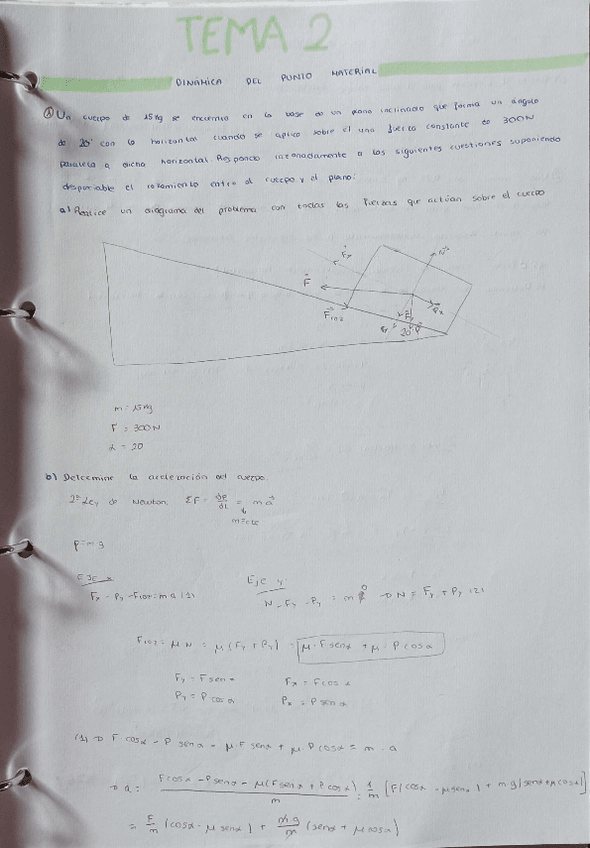 TEMA 2
DINÁMICA DEL PUNTO MATERIAL
① Un cuerpo de 15 kg se encuentra en la base de un plano inclinado que forma un ángulo
de 20° con la horizontal cuando se aplica sobre él una fuerza constante de 300N
paralela a dicha horizontal. Responda razonadamente a las siguientes cuestiones suponiendo
despreciable el rozamiento entre el cuerpo y el plano:
a) Realice un diagrama del problema con todas las fuerzas que actúan sobre el cuerpo
F⃗x
N⃗
F⃗
P⃗x
F⃗roz
F⃗y
20° P⃗
m = 15 kg
F = 300N
α = 20
b) Determine la aceleración del cuerpo.
2ª Ley de Newton: ΣF = dp/dt = m a⃗
m=cte
p = m g
EJE x
Eje y
Fx - Px - Froz = m a (1)
N - Fy - Py = m a 0 → N = Fy + Py (2)
Froz = μ N = μ (Fy + Py) = μ · F senα + μ · P cosα
Fy = F senα Fx = F cos α
Py = P cos α Px = P sen α
(1) → F cosα - P senα - μ F senα + μ · P cosα = m · a
→ a = F cosα - P senα - μ(F senα + P cosα) / m = 1/m [F(cosα - μ senα) + m g (senα + μ cosα)]
= F/m (cosα - μ senα) + m·g/m (senα + μ cosα)